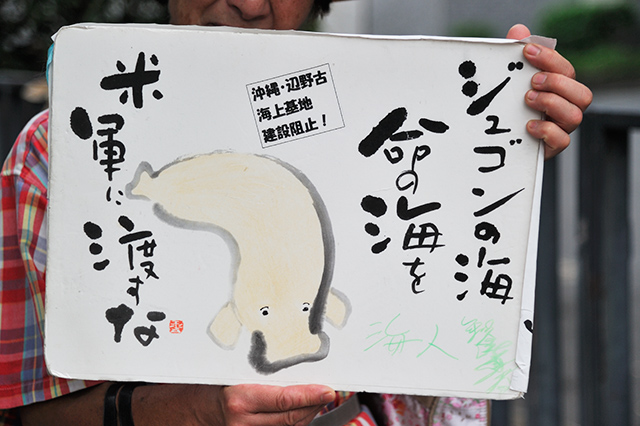 ジュゴンの海
命の海を
沖縄・辺野古
海上基地
建設阻止！
米軍に渡すな
海人